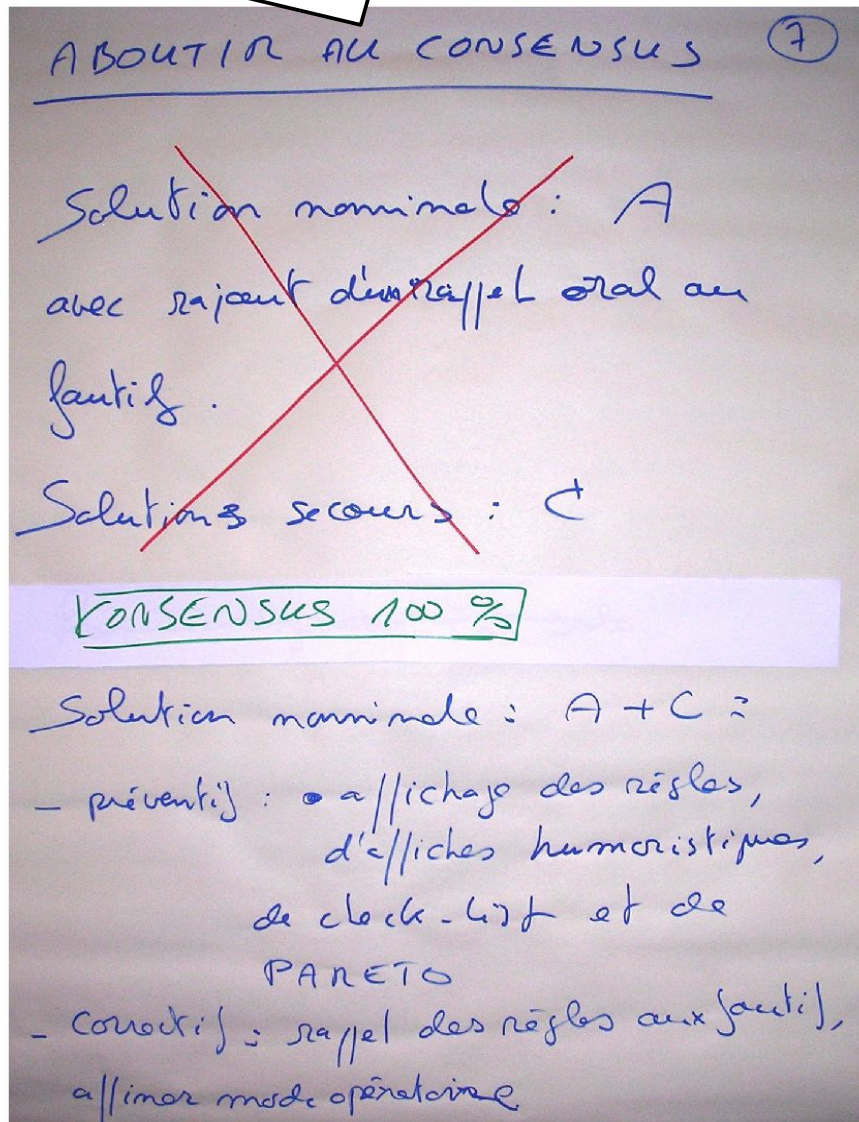 ABOUTIR AU CONSENSUS 7
Solution nominale : A
avec rajout d'un rappel oral au
fautif.
Solutions secours : C
CONSENSUS 100 %
Solution nominale : A + C :
- préventif : affichage des règles,
d'affiches humoristiques,
de check-list et de
PARETO
- Correctif : rappel des règles aux fautif,
affiner mode opératoire